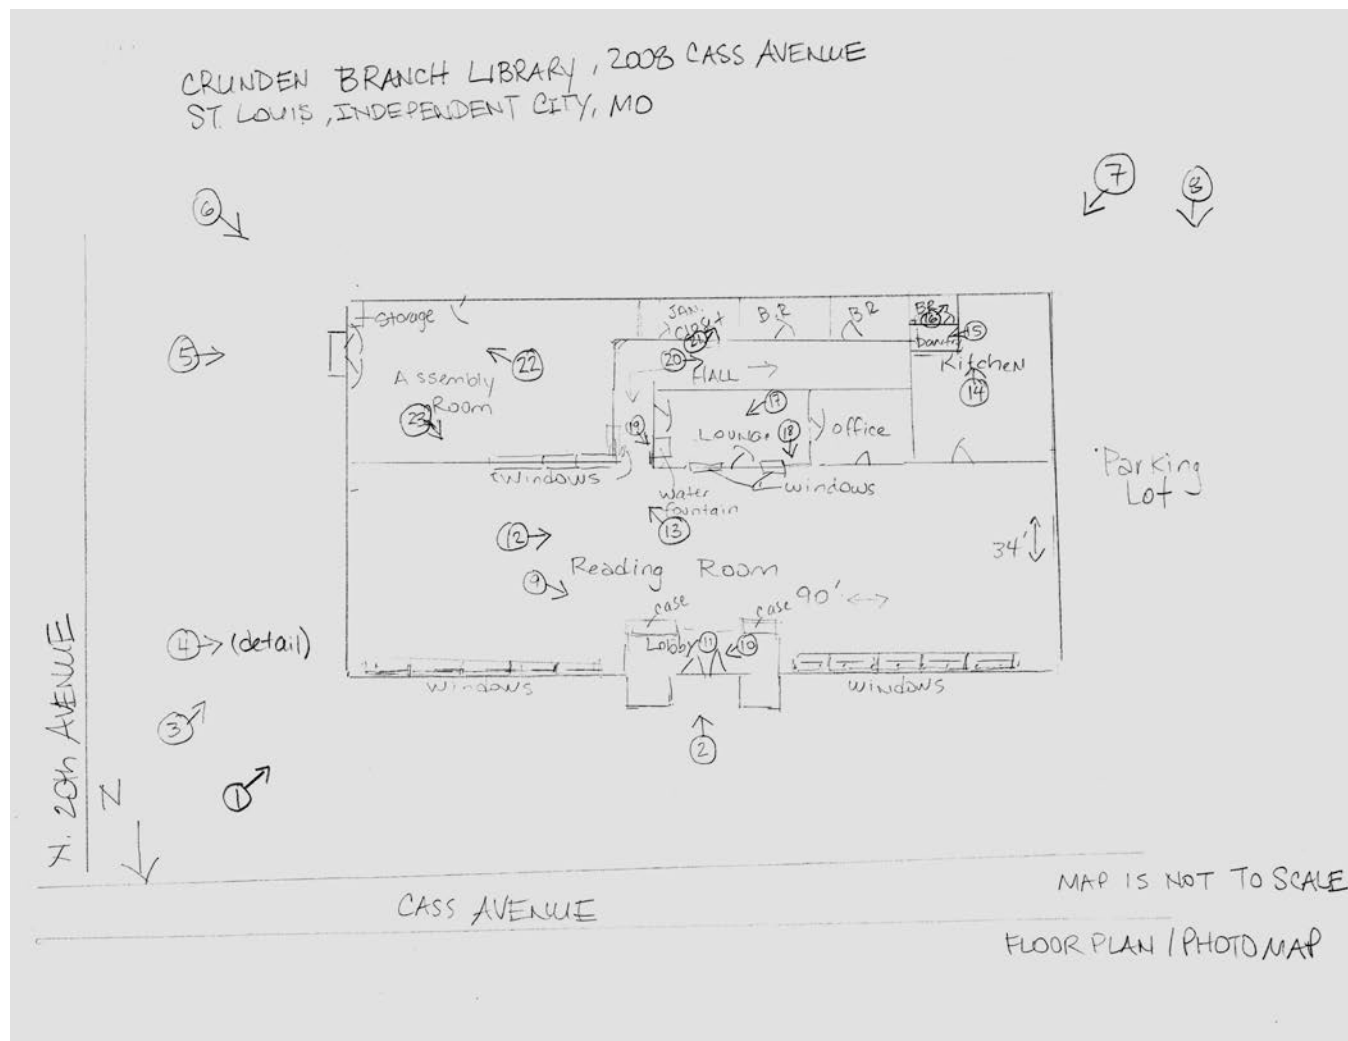 CRUNDEN BRANCH LIBRARY, 2008 CASS AVENUE
ST. LOUIS, INDEPENDENT CITY, MO
6
7
8
5
Storage
JAN.
Closet
B.R
B R
BR
16
15
Pantry
21
20
HALL
Kitchen
14
22
Assembly
Room
23
17
19
Lounge
18
Office
Windows
Water
fountain
windows
Parking
Lot
12
13
34'
Reading Room
9
case
case
90'
4
(detail)
Lobby
11
10
Windows
Windows
3
2
1
N
N. 20th AVENUE
CASS AVENUE
MAP IS NOT TO SCALE
FLOOR PLAN / PHOTO MAP